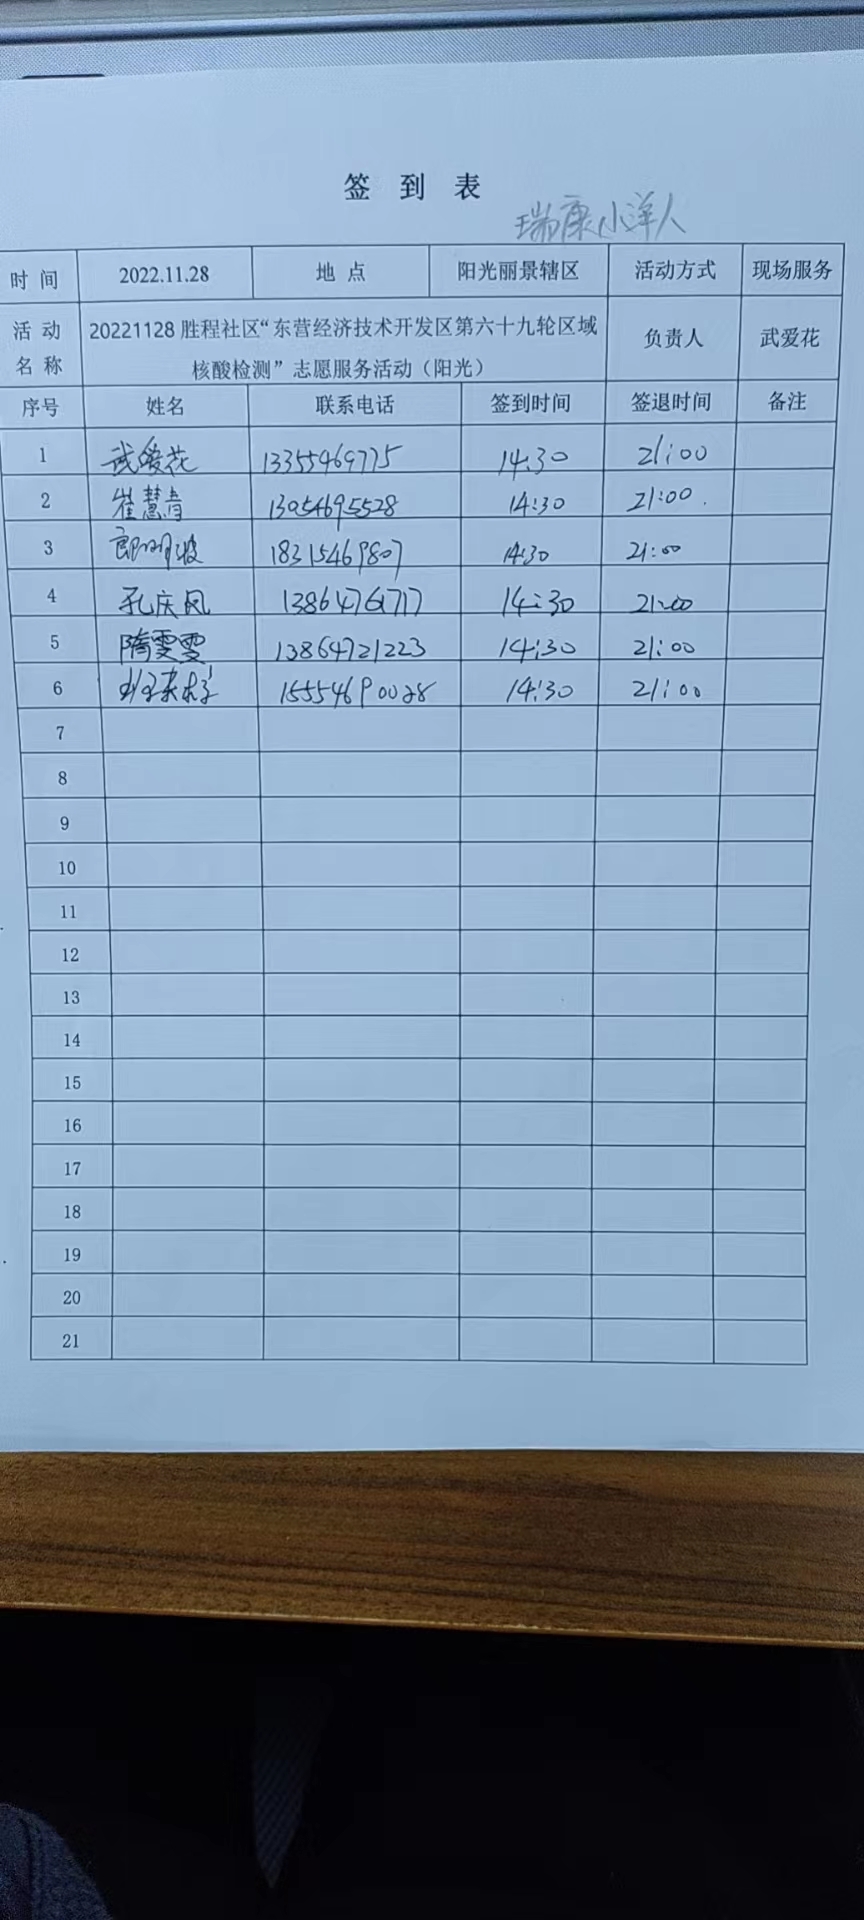 签 到 表
瑞康小洋人
时 间 2022.11.28 地 点 阳光丽景辖区 活动方式 现场服务
活 动 名 称 20221128胜程社区“东营经济技术开发区第六十九轮区域
核酸检测”志愿服务活动（阳光） 负责人 武爱花
序号 姓名 联系电话 签到时间 签退时间 备注
1 武爱花 13355469775 14:30 21:00
2 崔慧青 13054695528 14:30 21:00
3 郎明波 18315469807 14:30 21:00
4 孔庆凤 14:30 21:00
5 隋雯雯 13864721223 14:30 21:00
6 15554690028 14:30 21:00
7
8
9
10
11
12
13
14
15
16
17
18
19
20
21